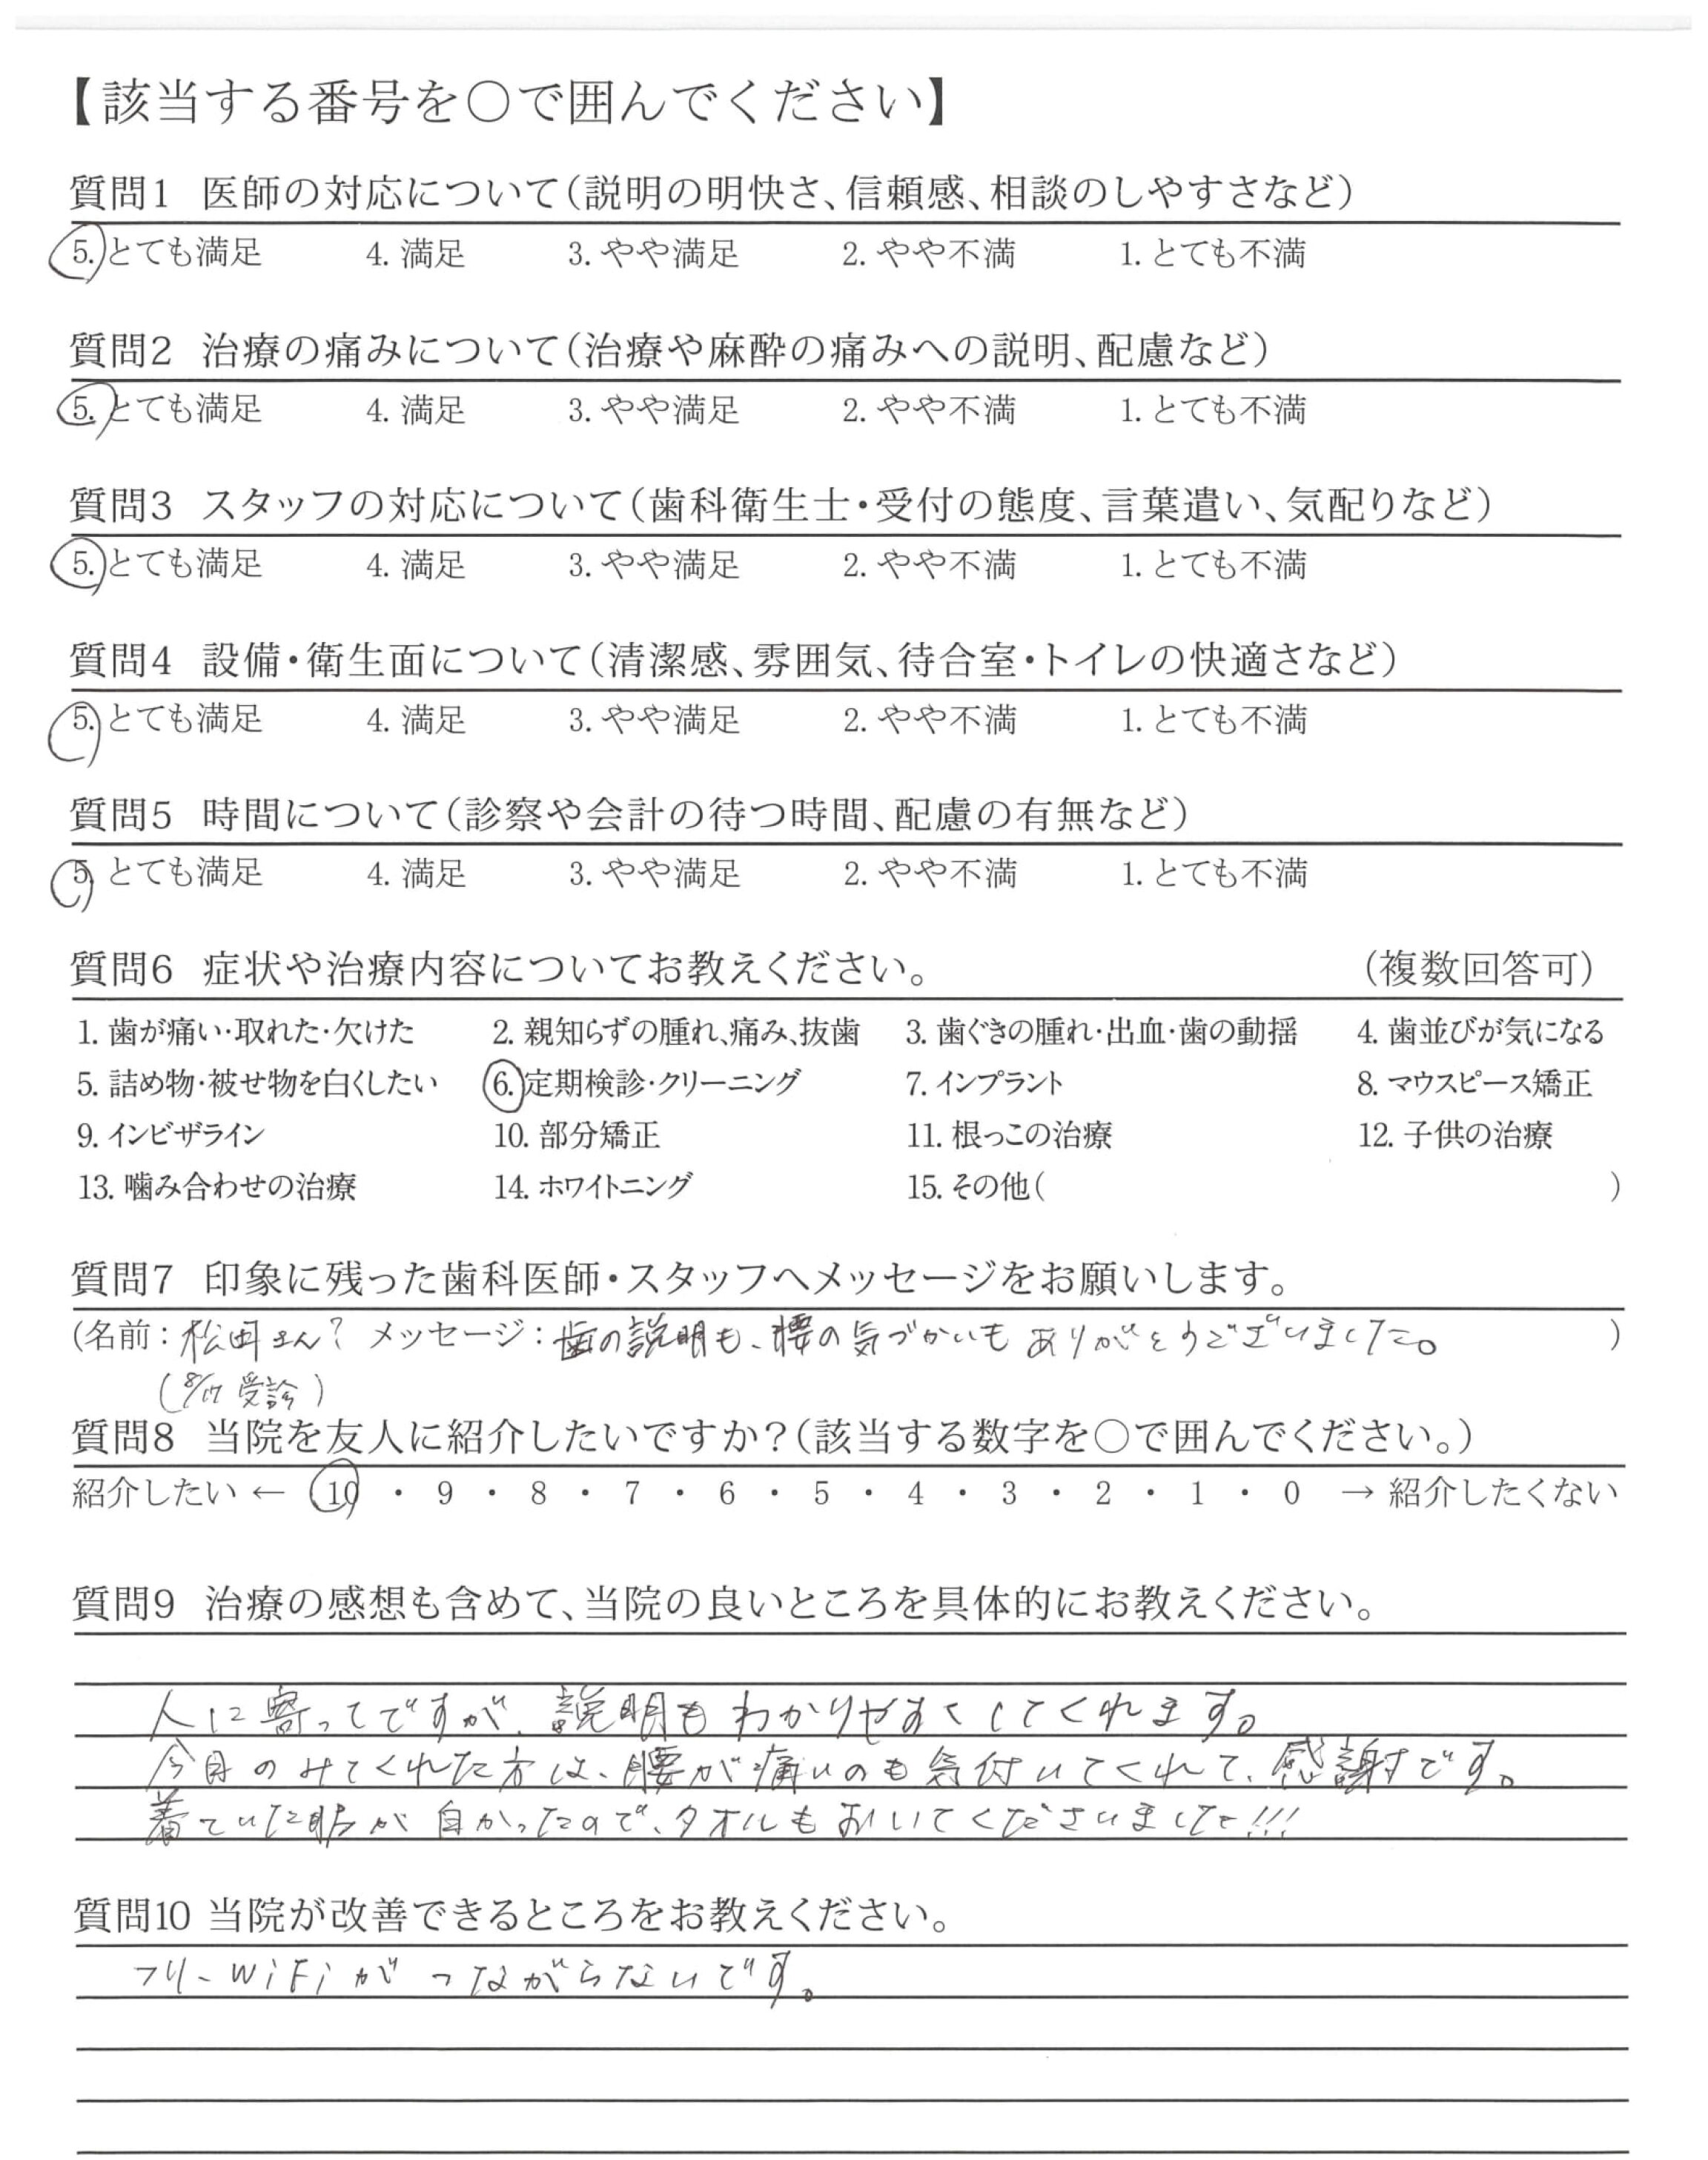 【該当する番号を○で囲んでください】
質問1 医師の対応について(説明の明快さ、信頼感、相談のしやすさなど)
5. とても満足 4. 満足 3. やや満足 2. やや不満 1. とても不満
質問2 治療の痛みについて(治療や麻酔の痛みへの説明、配慮など)
5. とても満足 4. 満足 3. やや満足 2. やや不満 1. とても不満
質問3 スタッフの対応について(歯科衛生士・受付の態度、言葉遣い、気配りなど)
5. とても満足 4. 満足 3. やや満足 2. やや不満 1. とても不満
質問4 設備・衛生面について(清潔感、雰囲気、待合室・トイレの快適さなど)
5. とても満足 4. 満足 3. やや満足 2. やや不満 1. とても不満
質問5 時間について(診察や会計の待つ時間、配慮の有無など)
5. とても満足 4. 満足 3. やや満足 2. やや不満 1. とても不満
質問6 症状や治療内容についてお教えください。 (複数回答可)
1. 歯が痛い・取れた・欠けた 2. 親知らずの腫れ、痛み、抜歯 3. 歯ぐきの腫れ・出血・歯の動揺 4. 歯並びが気になる
5. 詰め物・被せ物を白くしたい 6. 定期検診・クリーニング 7. インプラント 8. マウスピース矯正
9. インビザライン 10. 部分矯正 11. 根っこの治療 12. 子供の治療
13. 噛み合わせの治療 14. ホワイトニング 15. その他( )
質問7 印象に残った歯科医師・スタッフへメッセージをお願いします。
(名前:松田さん? メッセージ:歯の説明も、腰の気づかいもありがとうございました。 )
(8/17 受診)
質問8 当院を友人に紹介したいですか?(該当する数字を○で囲んでください。)
紹介したい ← 10 ・ 9 ・ 8 ・ 7 ・ 6 ・ 5 ・ 4 ・ 3 ・ 2 ・ 1 ・ 0 → 紹介したくない
質問9 治療の感想も含めて、当院の良いところを具体的にお教えください。
人に寄ってですが、説明もわかりやすくしてくれます。
今日のみてくれた方は、腰が痛いのも気付いてくれて、感謝です。
着ていた服が白かったので、タオルもおいてくださいました!!!
質問10 当院が改善できるところをお教えください。
フリーWiFiがつながらないです。